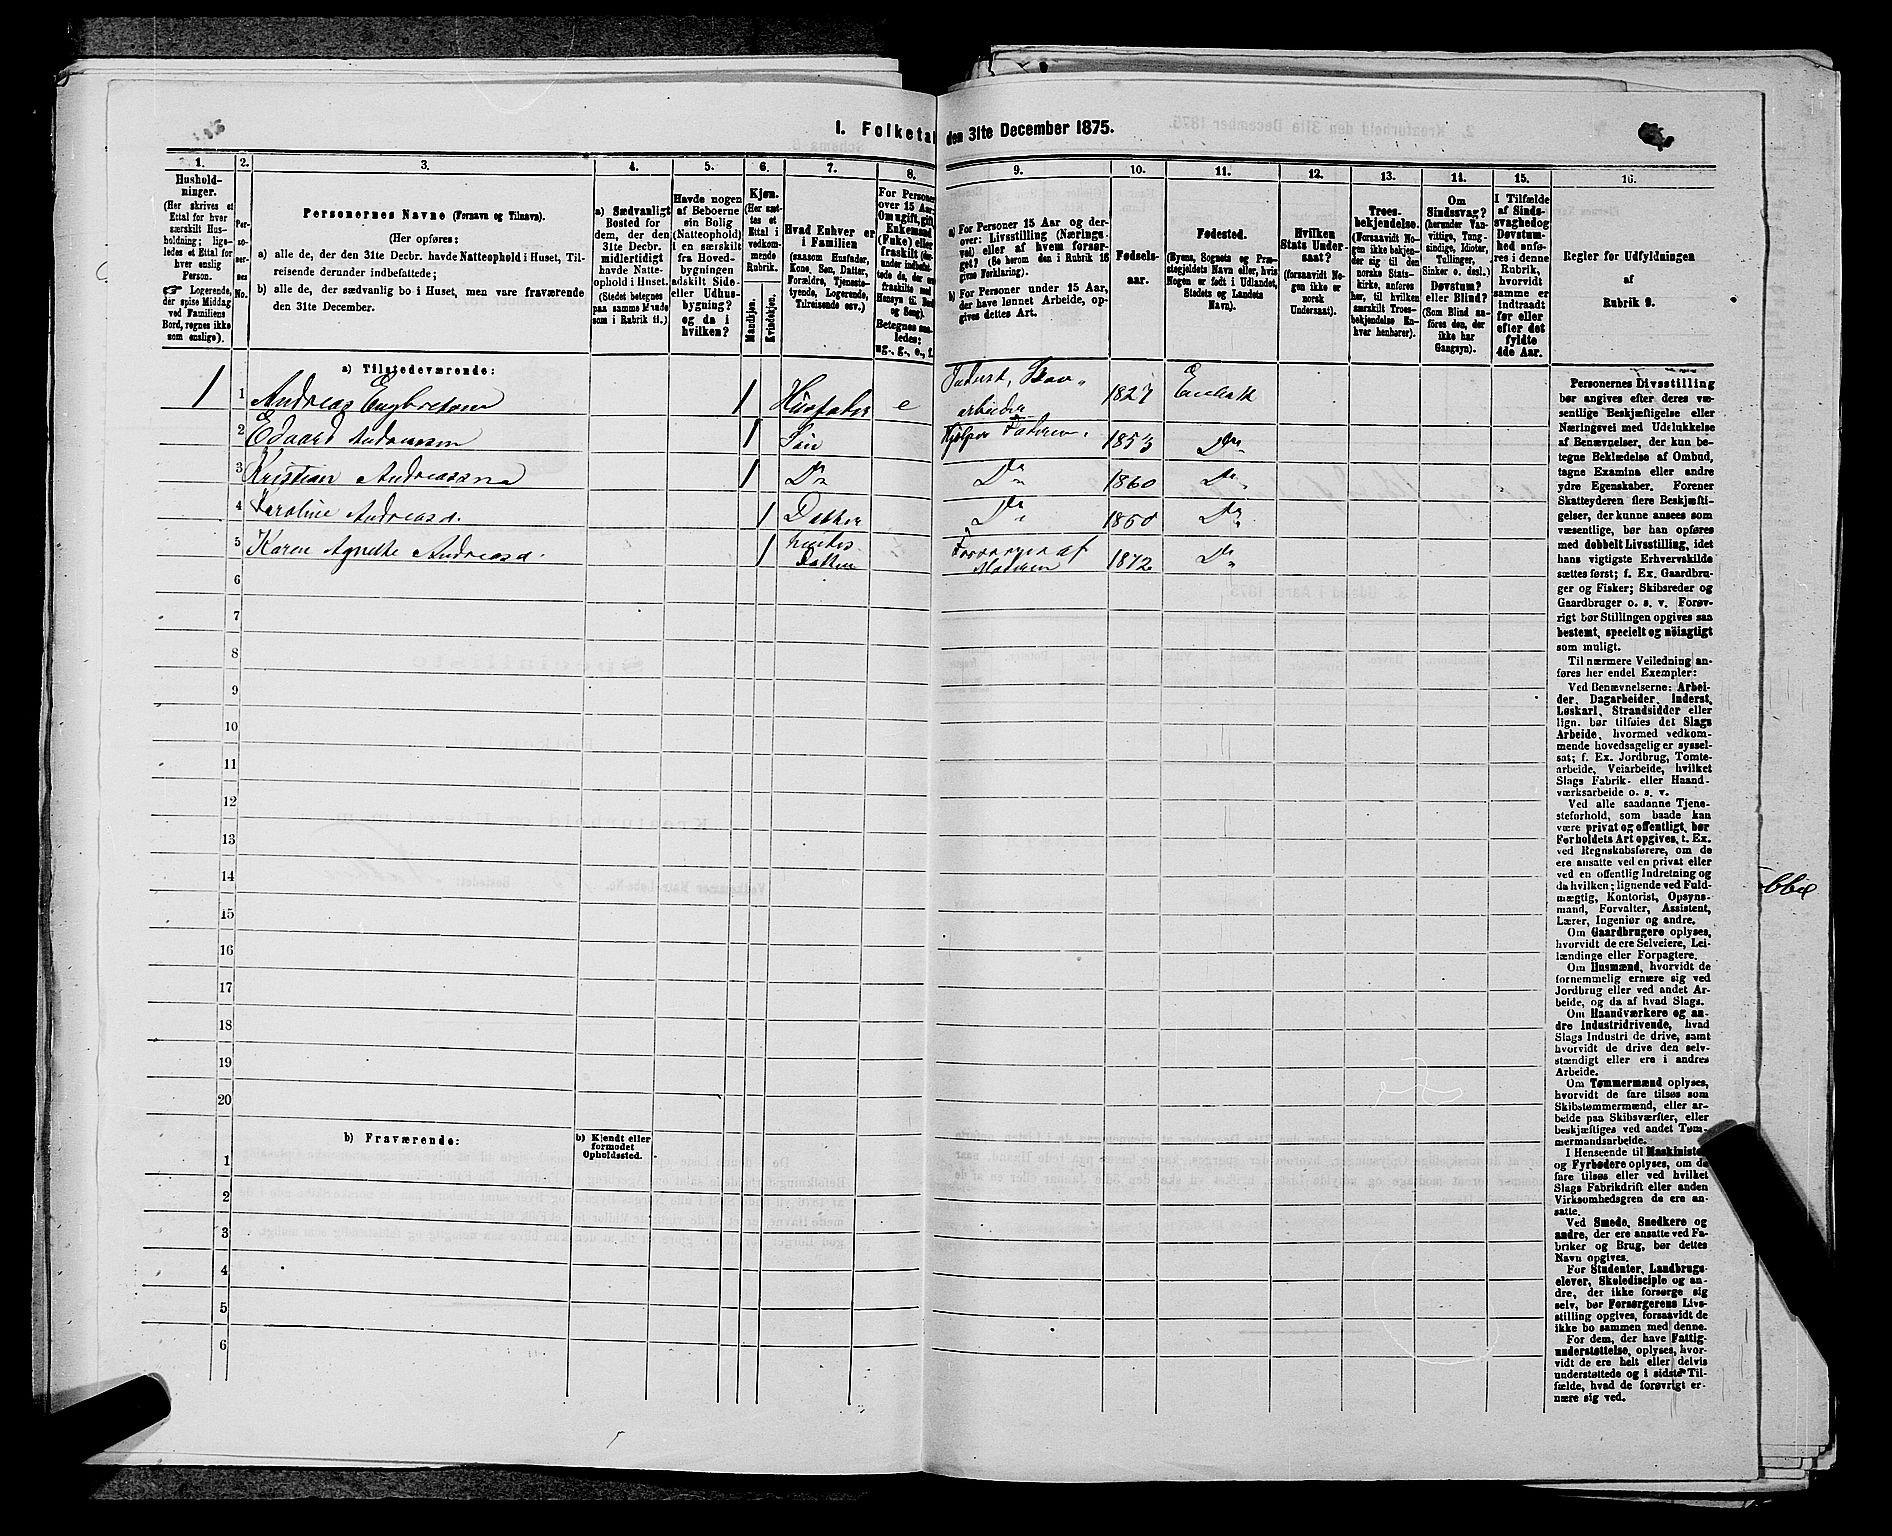 1. Folketal den 31te December 1875.
1.
2.
3.
4.
5.
6.
7.
8.
9.
10.
11.
12.
13.
14.
15.
16.
Hushold-
ninger.
(Her skrives et
Ettal for hver
særskilt Hus-
holdning; lige-
ledes et Ettal for
hver enslig
Person.
Logerende,
der spise Middag
ved Familiens
Bord, regnes ikke
som enslige).
Per-
so-
ner-
nes
No.
Personernes Navne (Fornavn og Tilnavn).
(Her opføres:
a) alle de, der den 31te Decbr. havde Natteophold i Huset, Til-
reisende derunder indbefattede;
b) alle de, der sædvanlig bo i Huset, men vare fraværende
den 31te December.
a) Sædvanligt
Bosted for
dem, der den
31te Decbr.
midlertidigt
havde Natte-
ophold i Huset.
(Stedet betegnes
paa samme Maade
som i Rubrik 11.)
Havde nogen
af Beboerne
sin Bolig
(Natteophold)
i en særskilt
fra Hoved-
bygningen
adskilt Side-
eller Udhus-
bygning?
og da i
hvilken?
Kjøn.
(Her sæt-
tes et
Ettal i
vedkom-
mende
Rubrik.
Mandkjøn.
Kvindekjøn.
Hvad Enhver er
i Familien
(saasom Husfader,
Kone, Søn, Datter,
Forældre, Tjeneste-
tyende, Logerende,
Tilreisende osv.)
For Personer
over 15 Aar:
Om ugift, gift,
Enkemand
(Enke) eller
fraskilt
Betegnes saa-
ledes:
ug., g., e., f.
a) For Personer 15 Aar og der-
over: Livsstilling (Nærings-
vei) eller af hvem forsør-
get? (Se herom den i Rubrik 16
givne Forklaring).
b) For Personer under 15 Aar,
der have lønnet Arbeide, op-
gives dettes Art.
Fødsels-
aar.
Fødested.
(Byens, Sognets og Præ-
stegjeldets Navn eller, hvis
Nogen er født i Udlandet,
Stedets og Landets
Navn).
Hvilken
Stats Under-
saat?
(forsaavidt No-
gen ikke er
norsk
Undersaat).
Troes-
bekjendelse.
(Forsaavidt No-
gen ikke bekjen-
der sig til den
norske Stats-
kirke, anføres
her, til hvilken
særskilt Troes-
bekjendelse En-
hver henhører).
Om
Sindssvag?
(herunder Van-
vittige, Tung-
sindige, Idioter,
Tullinger,
Sinker o. desl.)
Døvstum?
eller Blind?
(Som Blind an-
føres den, der
ikke har
Gangsyn).
I Tilfælde
af Sinds-
svaghed og
Døvstum-
hed anfø-
res i denne
Rubrik,
hvorvidt
samme er
indtraadt
før eller
efter det
fyldte
4de Aar.
Regler for Udfyldningen
af
Rubrik 9.
a) Tilstedeværende:
1 1 Andreas Engbretsen 1 Husfader e Inderst, arbeider 1827 Enebak
2 Edvard Andreasen 1 Søn Hjelper Faderen 1853 Do
3 Kristian Andreasen 1 Do Do 1860 Do
4 Karoline Andreasd. 1 Datter Do 1850 Do
5 Karen Agnethe Andreasd. 1 Datter Forsørges af Moderen 1872 Do
6
7
8
9
10
11
12
13
14
15
16
17
18
19
20
b) Fraværende:
b) Kjendt eller
formodet
Opholdssted.
1
2
3
4
5
6
Personernes Livsstilling
bør angives efter deres væ-
sentlige Beskjæftigelse eller
Næringsvei med Udelukkelse
af Benævnelser, der kun be-
tegne Beklædelse af Ombud,
tagne Examina eller andre
ydre Egenskaber. Forener
Skatteyderen flere Beskjæfti-
gelser, der kunne ansees som
væsentlige, bør han opføres
med dobbelt Livsstilling, idet
hans vigtigste Erhvervskilde
sættes først; f. Ex. Gaardbru-
ger og Fisker; Skibsreder og
Gaardbruger o. s. v. Forøv-
rigt bør Stillingen opgives saa
bestemt, specielt og nöiagtigt
som muligt.
Til nærmere Veiledning an-
føres her endel Exempler:
Ved Benævnelserne: Arbei-
der, Dagarbeider, Inderst,
Løskarl, Strandsidder eller
lign. bør tilføies det Slags
Arbeide, hvormed vedkom-
mende hovedsagelig er syssel-
sat; f. Ex. Jordbrug, Tomte-
arbeide, Veiarbeide, hvilket
Slags Fabrik- eller Haand-
værksarbeide o. s. v.
Ved alle saadanne Tjene-
steforhold, som baade kan
være privat og offentligt, bør
Forholdets Art opgives, t. Ex.
ved Regnskabsførere, om de
ere ansatte ved en privat eller
ved en offentlig Indretning og
da hvilken; lignende ved Fuld-
mægtig, Kontorist, Opsyns-
mand, Forvalter, Assistent,
Lærer, Ingeniør og andre.
Om Gaardbrugere oplyses,
hvorvidt de ere Selveiere, Lei-
lændinge eller Forpagtere.
Om Husmænd, hvorvidt de
fornemmelig ernære sig ved
Jordbrug eller ved andet Ar-
beide, og da af hvad Slags.
Om Haandværkere og an-
dre Industridrivende, hvad
Slags Industri de drive, samt
hvorvidt de drive den selv-
stændigt eller ere i andres
Arbeide.
Om Tømmermænd oplyses,
hvorvidt de fare tilsøs som
Skibstømmermænd, eller ar-
beide paa Skibsværfter, eller
beskjæftiges ved andet Tøm-
mermandsarbeide.
I Henseende til Maskinister
og Fyrbødere oplyses, om de
fare tilsøs eller ved hvilket
Slags Fabrikdrift eller anden
Virksomhedsgren de ere an-
satte.
Ved Smede, Snedkere og
andre, der ere ansatte ved Fa-
briker og Brug, bør dettes
Navn opgives.
For Studenter, Landbrugs-
elever, Skoledisciple og an-
dre, der ikke forsørge sig
selv, bør Forsørgerens Livs-
stilling opgives, forsaavidt de
ikke bo sammen med denne.
For dem, der have Fattig-
understøttelse, oplyses, hvor-
vidt de ere helt eller delvis
understøttede og i sidste Til-
fælde, hvad de forøvrigt er-
nære sig ved.